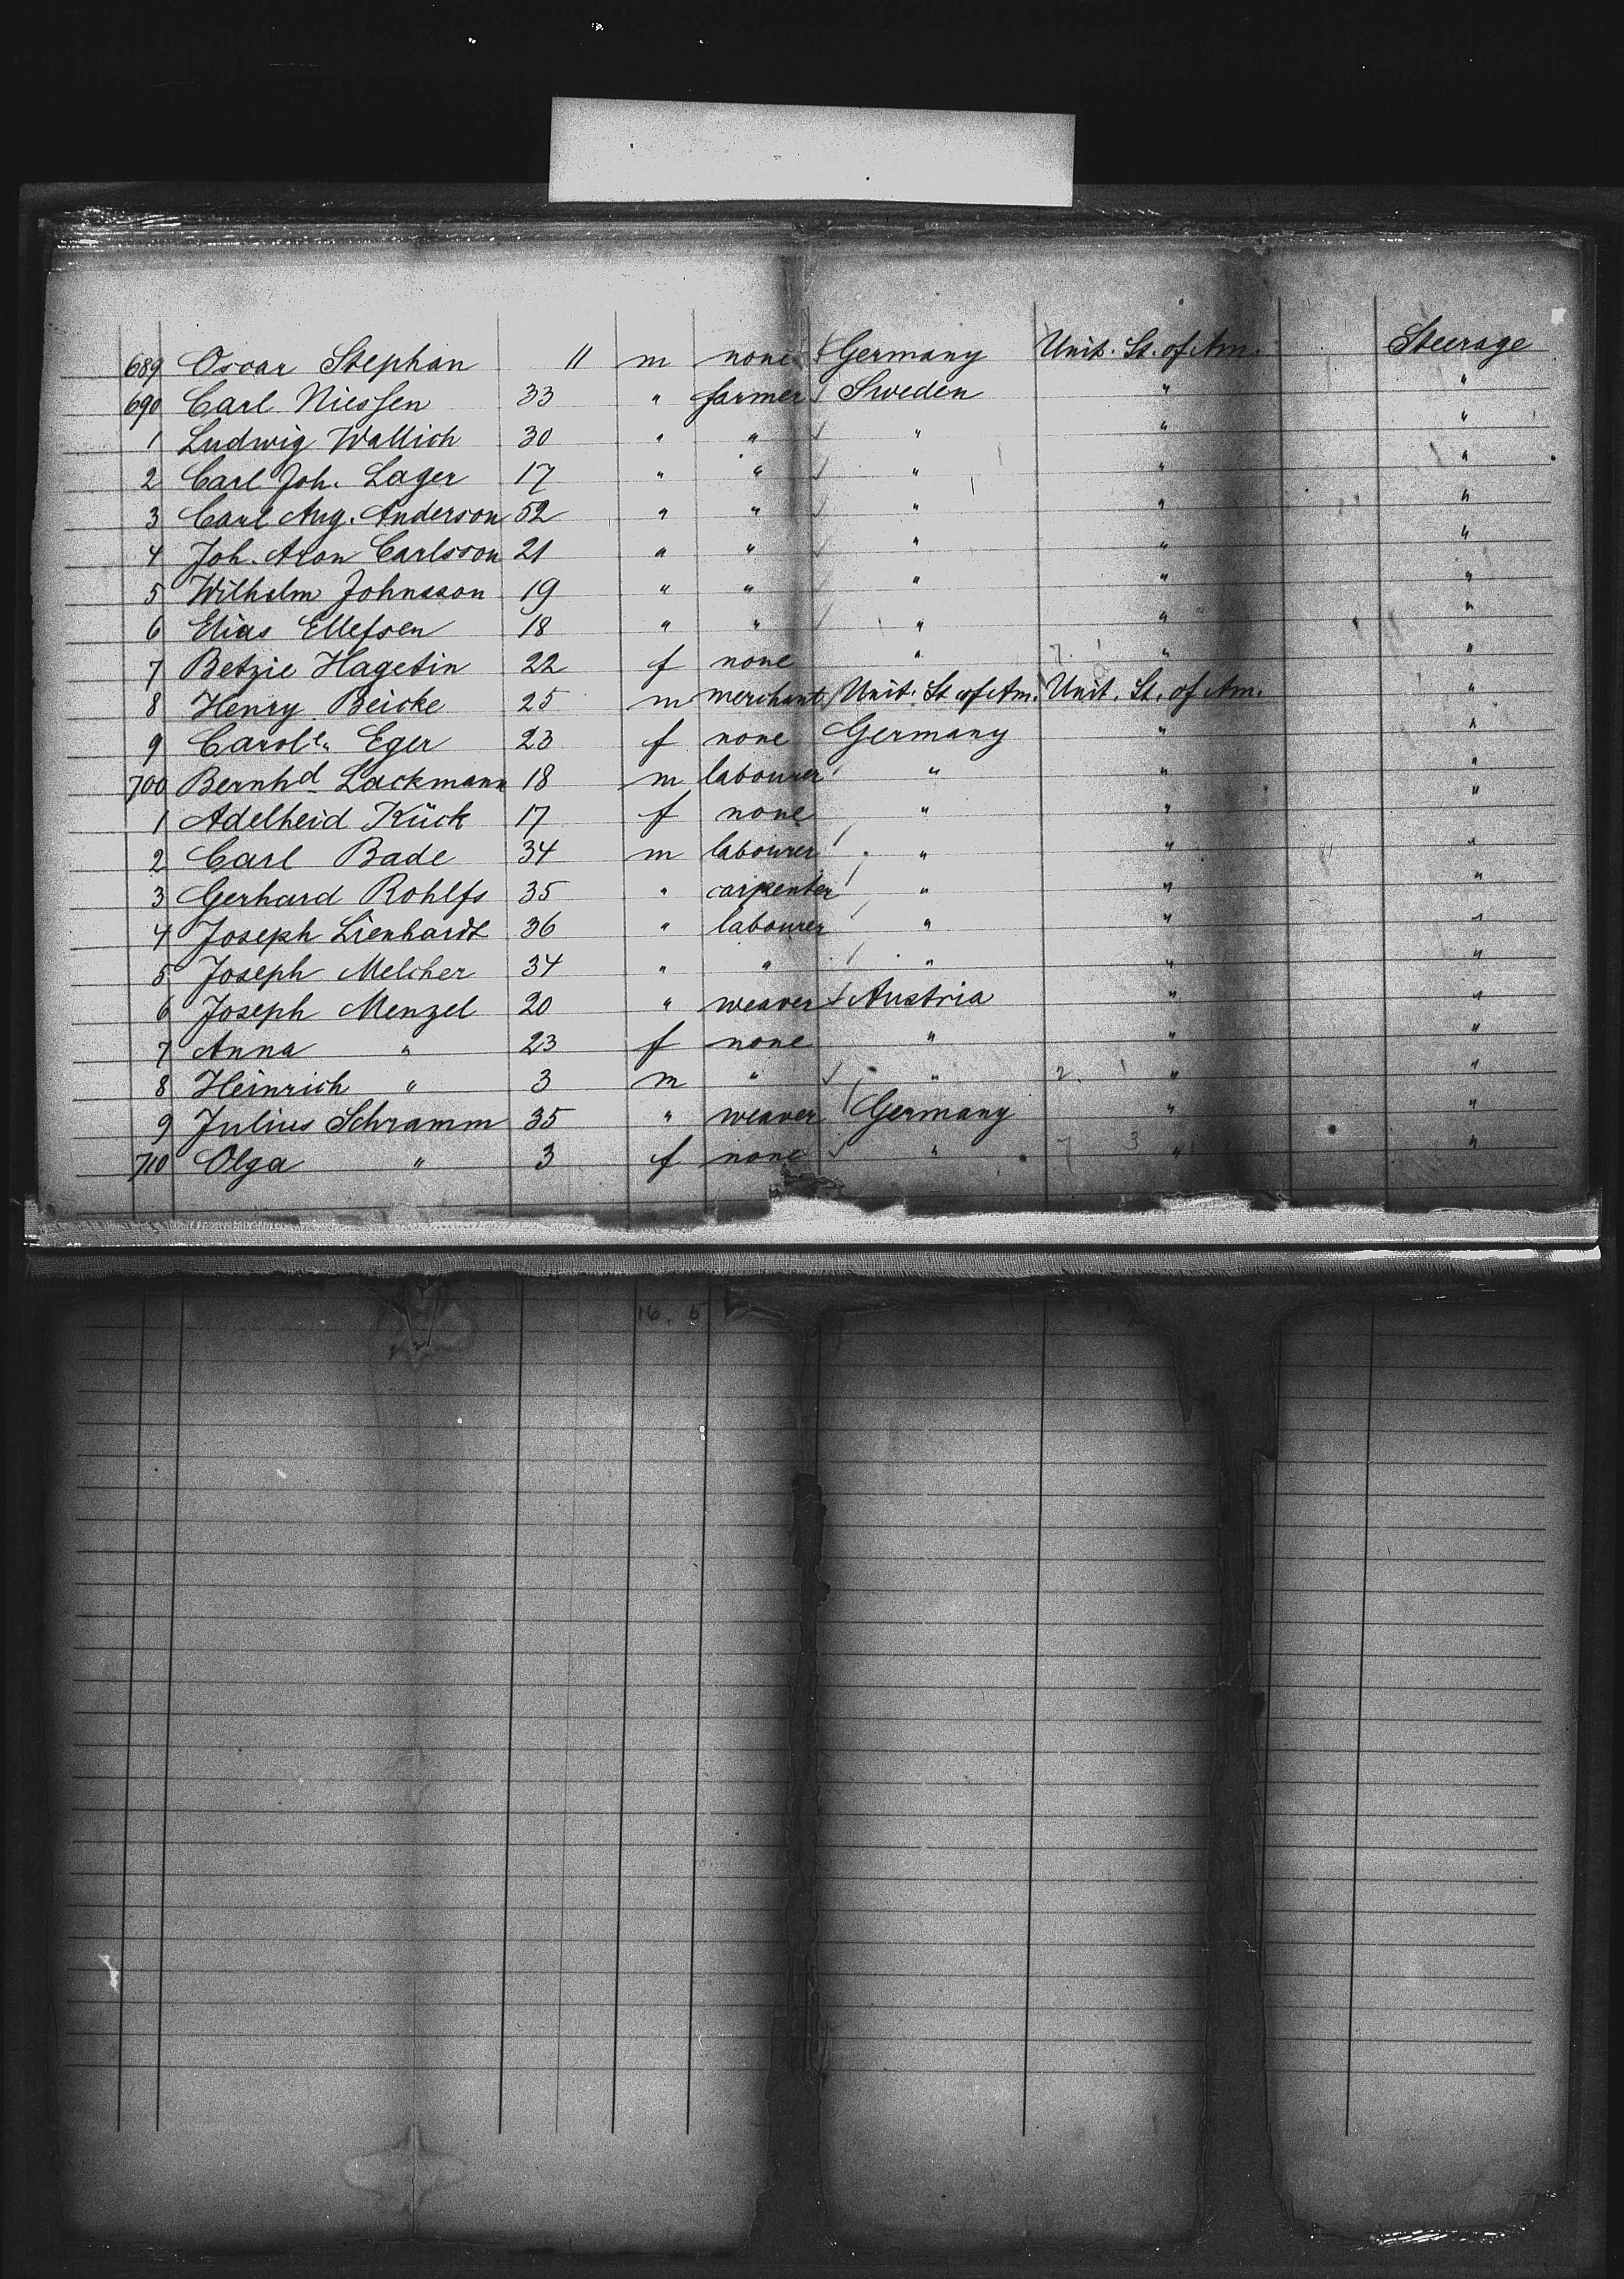 689 Oscar Stephan 11 m none Germany Unit. St. of Am. Steerage
690 Carl Niessen 33 " farmer Sweden " "
1 Ludwig Wallich 30 " " " " "
2 Carl Joh. Lager 17 " " " " "
3 Carl Aug. Anderson 52 " " " " "
4 Joh. Aron Carlsson 21 " " " " "
5 Wilhelm Johnsson 19 " " " " "
6 Elias Ellefsen 18 " " " " "
7 Betzie Hagetin 22 f none " " "
8 Henry Beicke 25 m merchant Unit. St. of Am. Unit. St. of Am. "
9 Carole" Eger 23 f none Germany " "
700 Bernhd Lackmann 18 m labourer " " "
1 Adelheid Kück 17 f none " " "
2 Carl Bade 34 m labourer " " "
3 Gerhard Rohlfs 35 " carpenter " " "
4 Joseph Lienhardt 36 " labourer " " "
5 Joseph Melcher 34 " " " " "
6 Joseph Menzel 20 " weaver Austria " "
7 Anna " 23 f none " " "
8 Heinrich " 3 m " " 2. 1 " "
9 Julius Schramm 35 " weaver Germany " "
710 Olga " 3 f none " 7 3 " "
16. 5